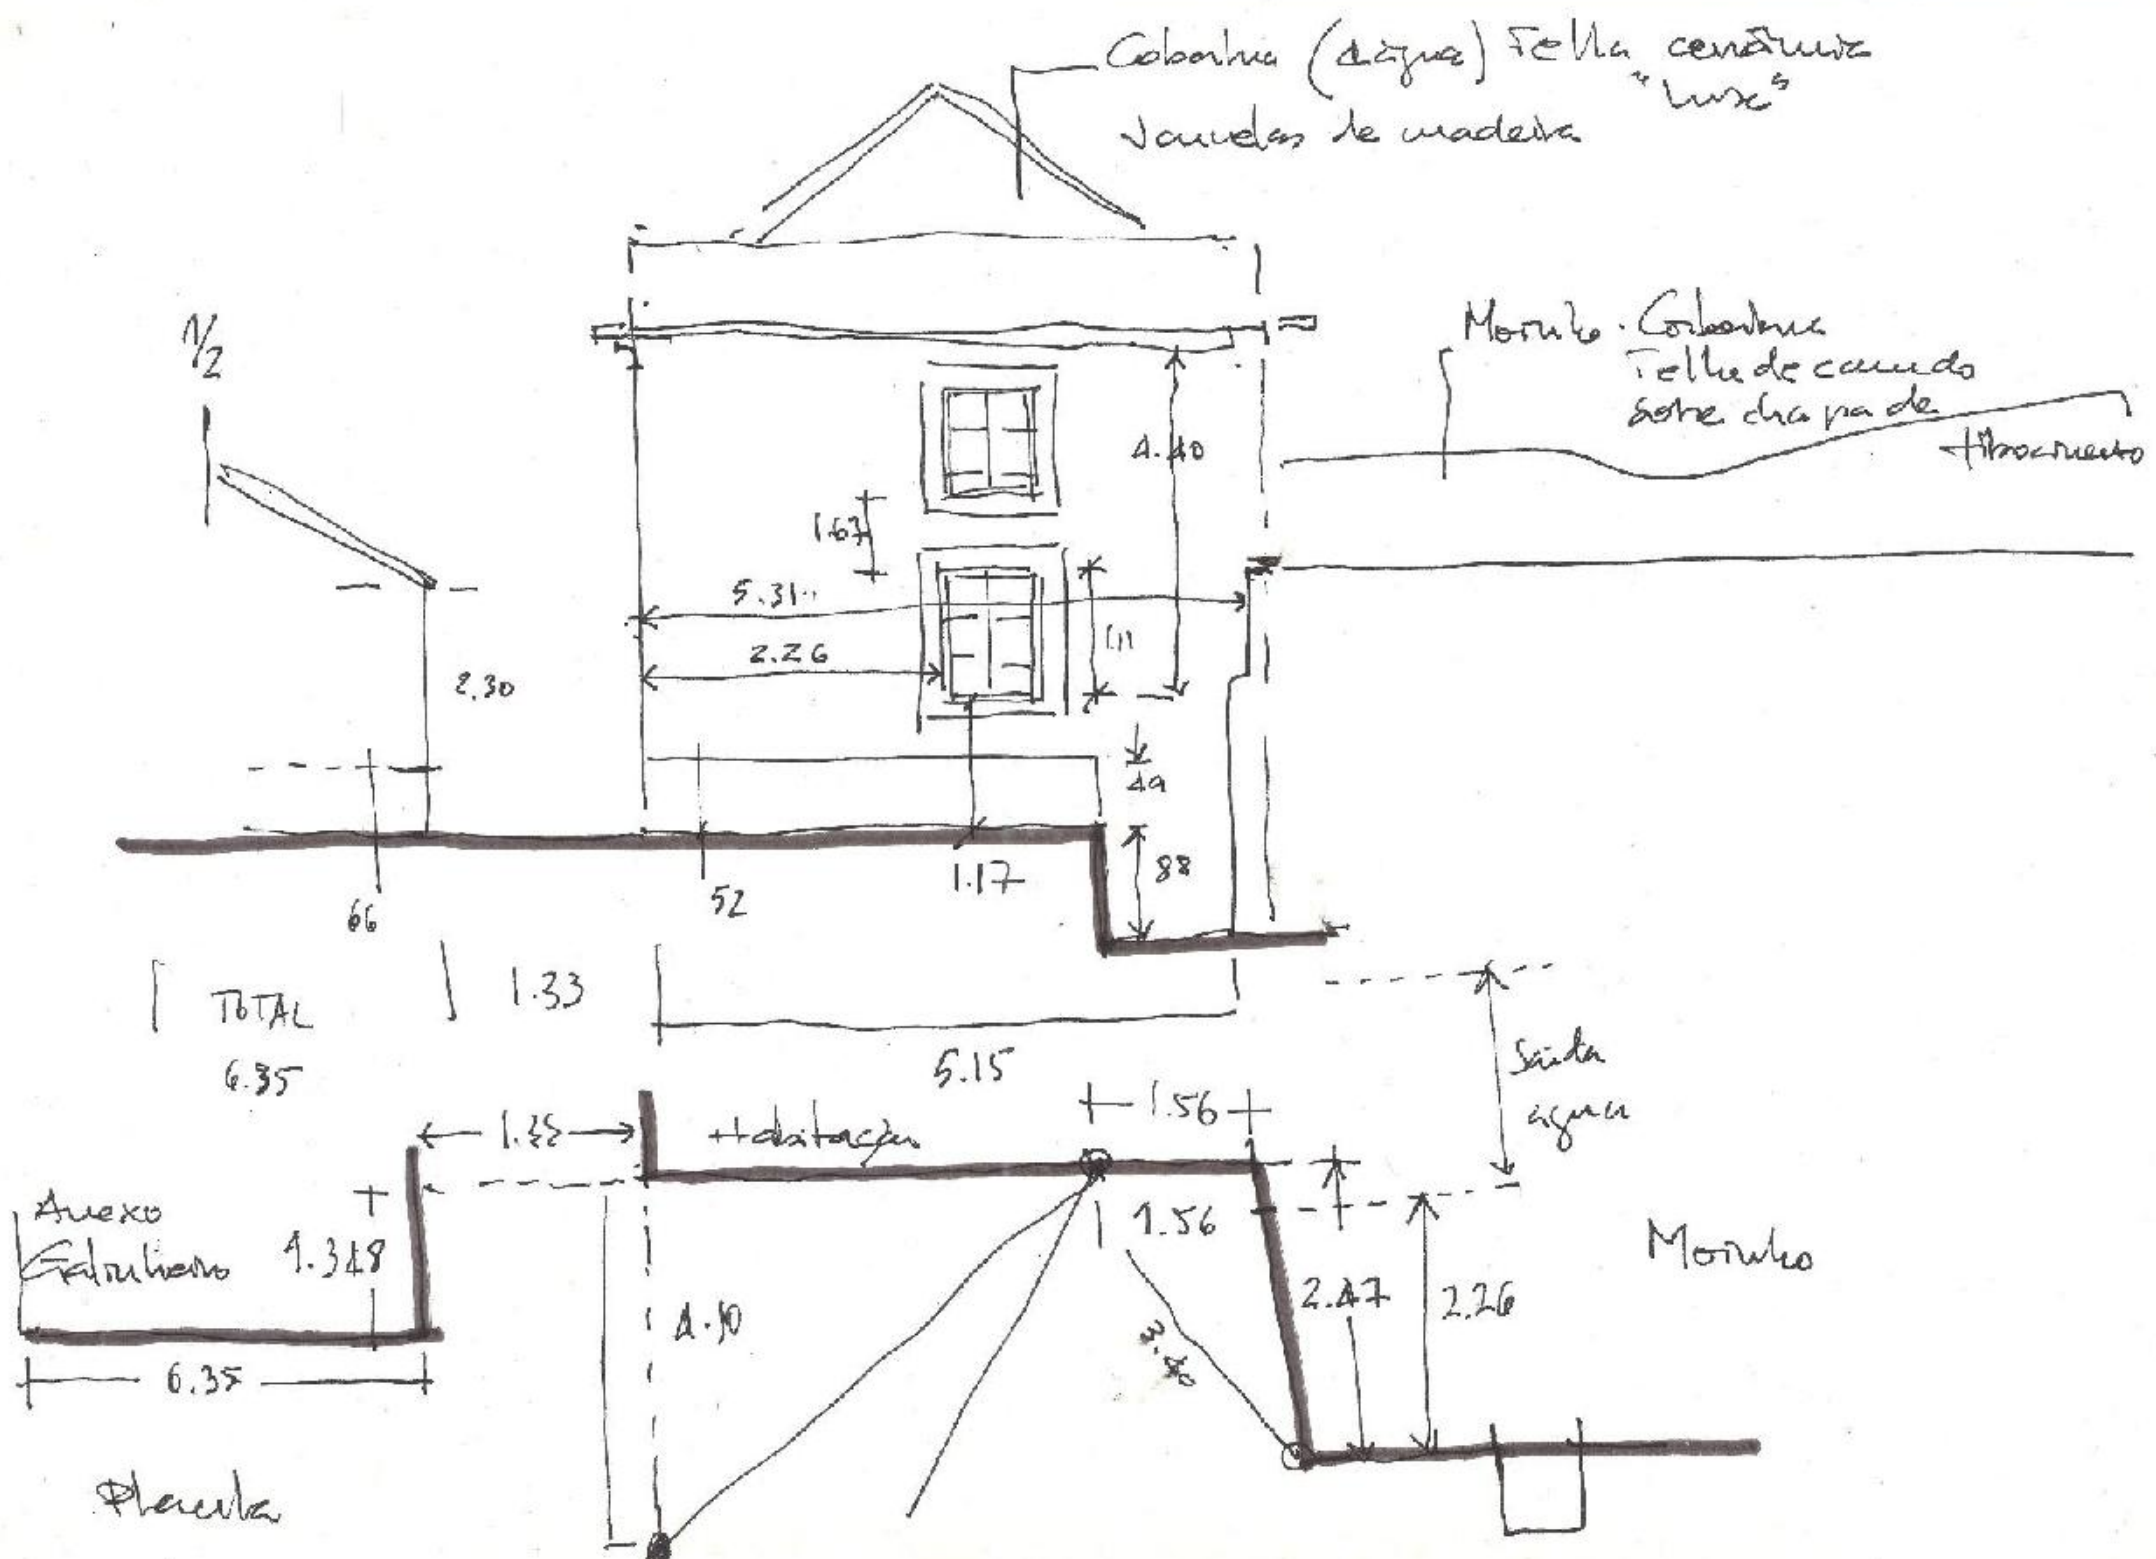 Cobertura (4 água) Telha cerâmica
"lusa"
Janelas de madeira
1/2
Moinho - Cobertura
Telha de canudo
sobre chapa de
fibrocimento
4.40
1.67
5.31
2.26
1.11
2.30
49
88
1.17
66
52
TOTAL
6.35
1.33
5.15
Saída
água
1.56
1.33
Habitação
Anexo
Galinheiro
1.348
1.56
Moinho
2.47
2.26
3.40
6.35
Planta